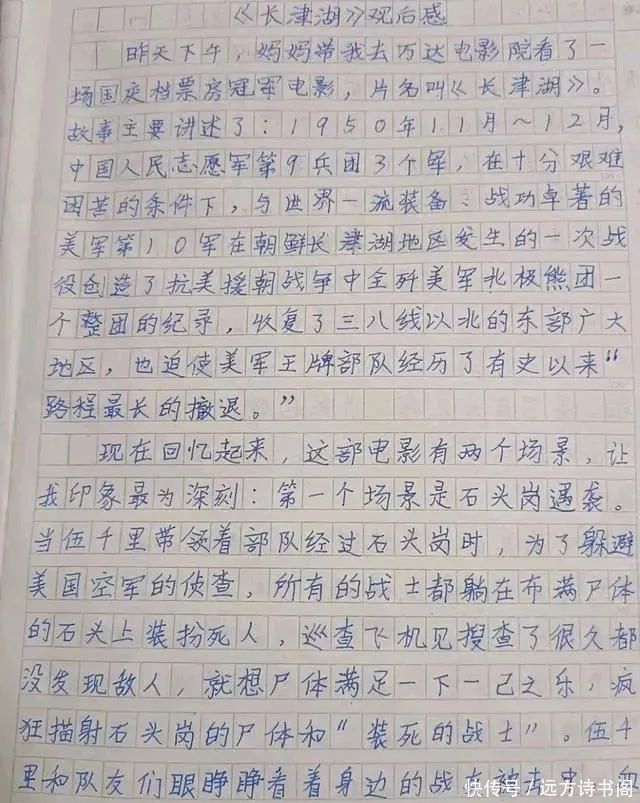 《长津湖》观后感
昨天下午，妈妈带我去万达电影院看了一
场国庆档票房冠军电影，片名叫《长津湖》。
故事主要讲述了：1950年11月～12月，
中国人民志愿军第9兵团3个军，在十分艰难
困苦的条件下，与世界一流装备、战功卓著的
美军第10军在朝鲜长津湖地区发生的一次战
役创造了抗美援朝战争中全歼美军北极熊团一
个整团的纪录，收复了三八线以北的东部广大
地区，也迫使美军王牌部队经历了有史以来“
路程最长的撤退。”
现在回忆起来，这部电影有两个场景，让
我印象最为深刻：第一个场景是石头岗遇袭。
当伍千里带领着部队经过石头岗时，为了躲避
美国空军的侦查，所有的战士都躺在布满尸体
的石头上装扮死人，巡查飞机见搜查了很久都
没发现敌人，就想尸体满足一下一己之乐，疯
狂描射石头岗的尸体和“装死的战士”。伍千
里和队友们眼睁睁看着身边的战友
快传号/远方诗书阁